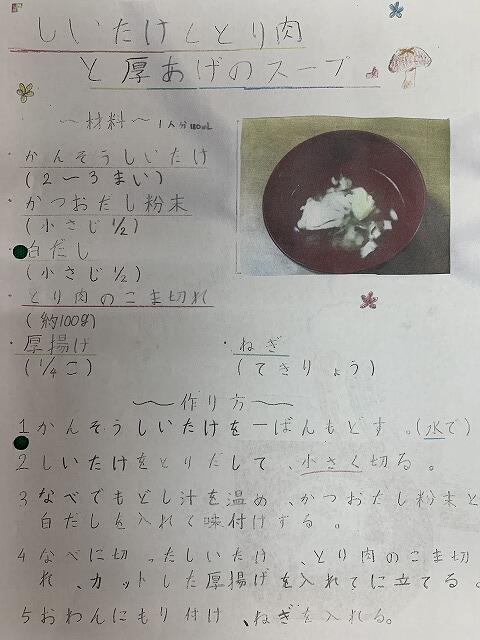 しいたけととり肉
と厚あげのスープ
〜材料〜 1人分180mL
・かんそうしいたけ
(2〜3まい)
・かつおだし粉末
(小さじ1/2)
白だし
(小さじ1/2)
・とり肉のこま切れ
(約100g)
・厚揚げ
(1/4こ)
・ねぎ
(てきりょう)
〜作り方〜
1かんそうしいたけを一ばんもどす。(水で)
2しいたけをとりだして、小さく切る。
3なべでもどし汁を温め、かつおだし粉末と
白だしを入れて味付けする。
4なべに切ったしいたけ、とり肉のこま切
れ、カットした厚揚げを入れてに立てる。
5おわんにもり付け、ねぎを入れる。